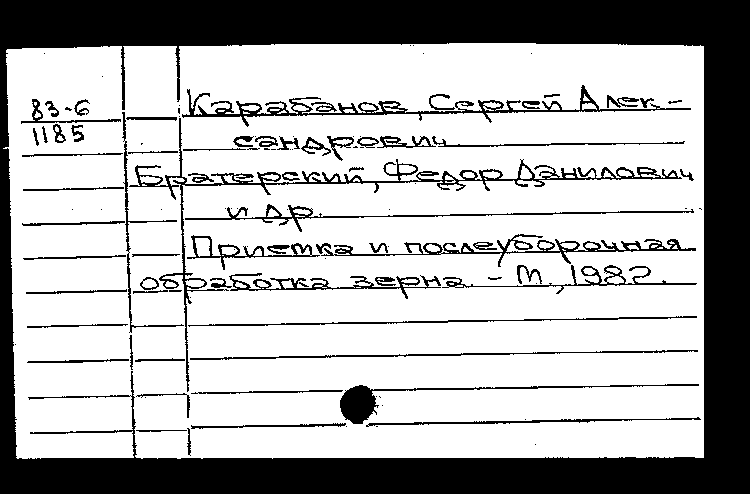 83-6
1185
Карабанов, Сергей Алек-
сандрович
Братерский, Федор Данилович
и др.
Приемка и послеуборочная
обработка зерна. - М., 1982.